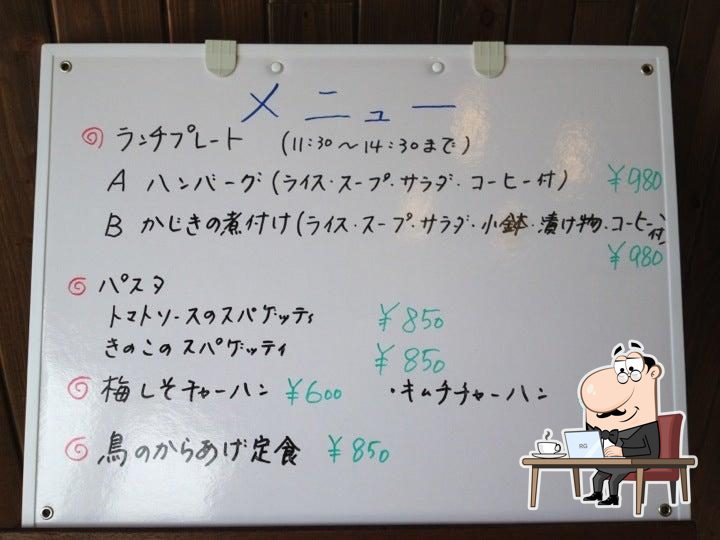 メニュー
ランチプレート (11:30〜14:30まで)
A ハンバーグ(ライス・スープ・サラダ・コーヒー付) ¥980
B かじきの煮付け(ライス・スープ・サラダ・小鉢・漬け物・コーヒー付)
¥980
パスタ
トマトソースのスパゲッティ ¥850
きのこのスパゲッティ ¥850
梅しそチャーハン ¥600 ・キムチチャーハン
鳥のからあげ定食 ¥850
RG